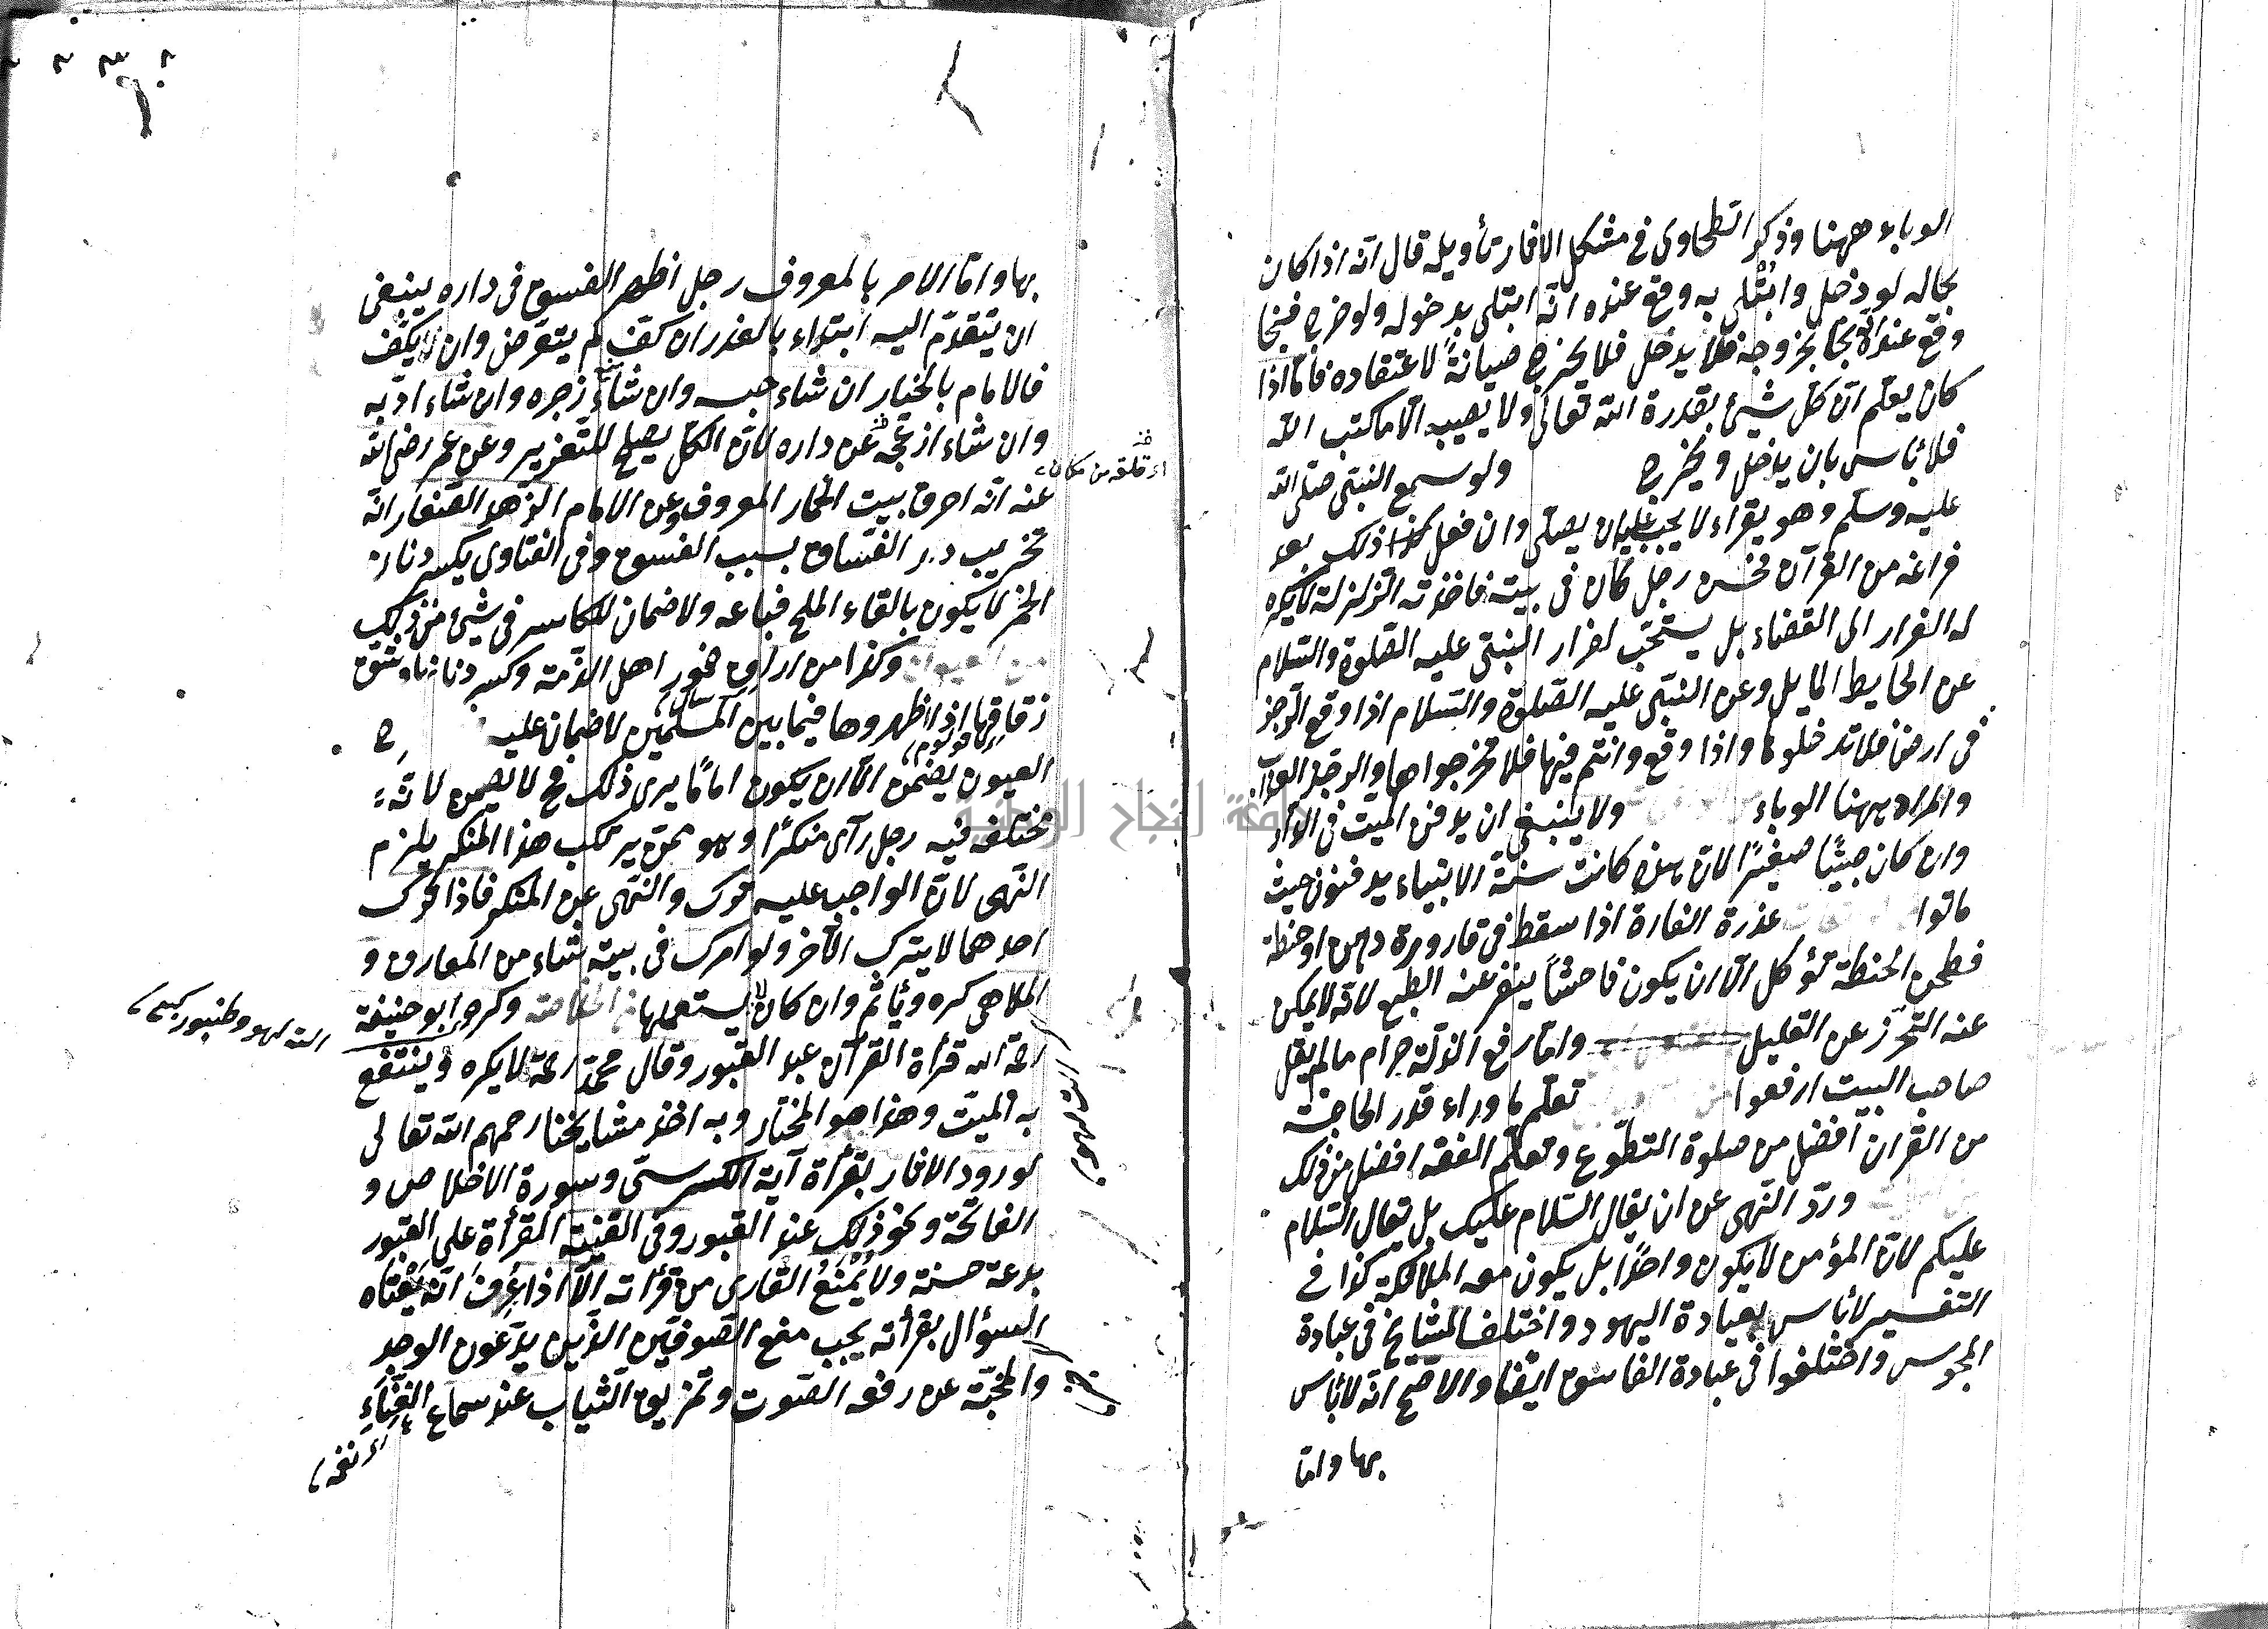 الوباء ههنا وذكر الطحاوى فى مشكل الاثار تأويله قال انه اذا كان
بحاله لو دخل وابتلى به وقع عنده انه ابتلى بدخوله ولو خرج فنجا
وقع عنده انه نجا بخروجه فلا يدخل فلا يخرج صيانةً لاعتقاده فامّا اذا
كان يعلم انّ كلّ شيئ بقدرة اللّه تعالى ولا يصيبه الّا ما كتب اللّه
فلا بأس بان يدخل ويخرج ولو سمع النبىّ صلّى اللّه
عليه وسلّم وهو يقراء لا يجب عليه ان يصلّى وان فعل ذلك بعد
فراغه من القرآن فحسن رجل كان فى بيته فاخذته الزلزلة لا يكره
له الفرار الى القضاء بل يستحبّ لفرار النبىّ عليه الصّلوة والسّلام
عن الحايط المايل وعن النبىّ عليه الصّلوة والسّلام اذا وقع الرّجز
فى ارض فلا تدخلوها واذا وقع وانتم فيها فلا تخرجوا منها والرجز العذاب
والمراد ههنا الوباء ولا ينبغى ان يدفن الميّت فى الدار
وان كان صبيًّا صغيرًا لانّ هذه كانت سنّة الانبياء يدفنون حيث
ماتوا عذرة الفارة اذا سقط فى قارورة دهن او حنطة
فطحن الحنطة تؤكل الّا ان يكون فاحشًا ينفر عنه الطبع لانّه لا يمكن
عنه التّحرّز عن القليل وامّا رفع الذلّة حرام ما لم يقل
صاحب البيت ارفعوا تعلّم ما وراء قدر الحاجة
من القران افضل من صلوة التطوّع وتعلّم الفقه افضل من ذلك
وردّ النّهى عن ان يقال السّلام عليك بل يقال السّلام
عليكم لانّ المؤمن لا يكون واحدًا بل يكون معه الملائكة كذا فى
التفسير لا بأس بعيادة اليهود واختلف المشايخ فى عيادة
المجوس واختلفوا فى عيادة الفاسق ايضا والاصّح انّه لا بأس
بها وامّا
بها وامّا الامر بالمعروف رجل اظهر الفسوق فى داره ينبغى
ان يتقدّم اليه ابتداء بالعذر ان كفّ لم يتعرّض وان لم يكفّ
فالامام بالخيار ان شاء حبسه وان شاء زجره وان شاء ادّبه
وان شاء ازعجه عن داره لانّ الكلّ يصلح للتعزير وعن عمر رضى اللّه
اى قلعه من مكانه
عنه انّه احرق بيت الخمار المعروف وعن الامام الزّاهد الصّفار انّه
تخريب دار الفسّاق بسبب الفسوق وفى الفتاوى يكسر دنان
الخمر لا يكون بالقاء الملح فباعه ولا ضمان للكاسر فى شيئ من ذلك
وكذا من اراق خمور اهل الذمّة وكسر دنانها وشقّ
زقاقها اذا اظهروها فيما بين المسلمين لا ضمان عليه
العيون يضمن الّا ان يكون امامًا يرى ذلك فح لا يضمن لانّه
مختلف فيه رجل رآى منكرًا وهو ممّن يرتكب هذا المنكر يلزم
النّهى لانّ الواجب عليه ترك والنّهى عن المنكر فاذا ترك
احدهما لا يترك الآخر ولو امرك فى بيته شاء من المعازف و
الملاهى كره ويأثم وان كان لا يستعملها وكره ابو حنيفة
رحمة اللّه قرأة القرآن عند القبور وقال محمّد رحمه لا يكره وينتفع
به الميّت وهذا هو المختار وبه اخذ مشايخنا رحمهم اللّه تعالى
لورود الاثار بقرأة آية الكرسىّ وسورة الاخلاص و
الفاتحة ونحو ذلك عند القبور وفى القنية القرأة على القبور
بدعة حسنة ولا يُمْنَعُ القارى من قرأته الّا اذا عُرِفَ انّه يعتاد
السؤال بقرأته يجب منع الصّوفيّين الذّين يدّعون الوجد
والمحبّة عن رفع الصّوت وتمزيق الثياب عند سماع الغِنَاءِ
جامعة النجاح الوطنية